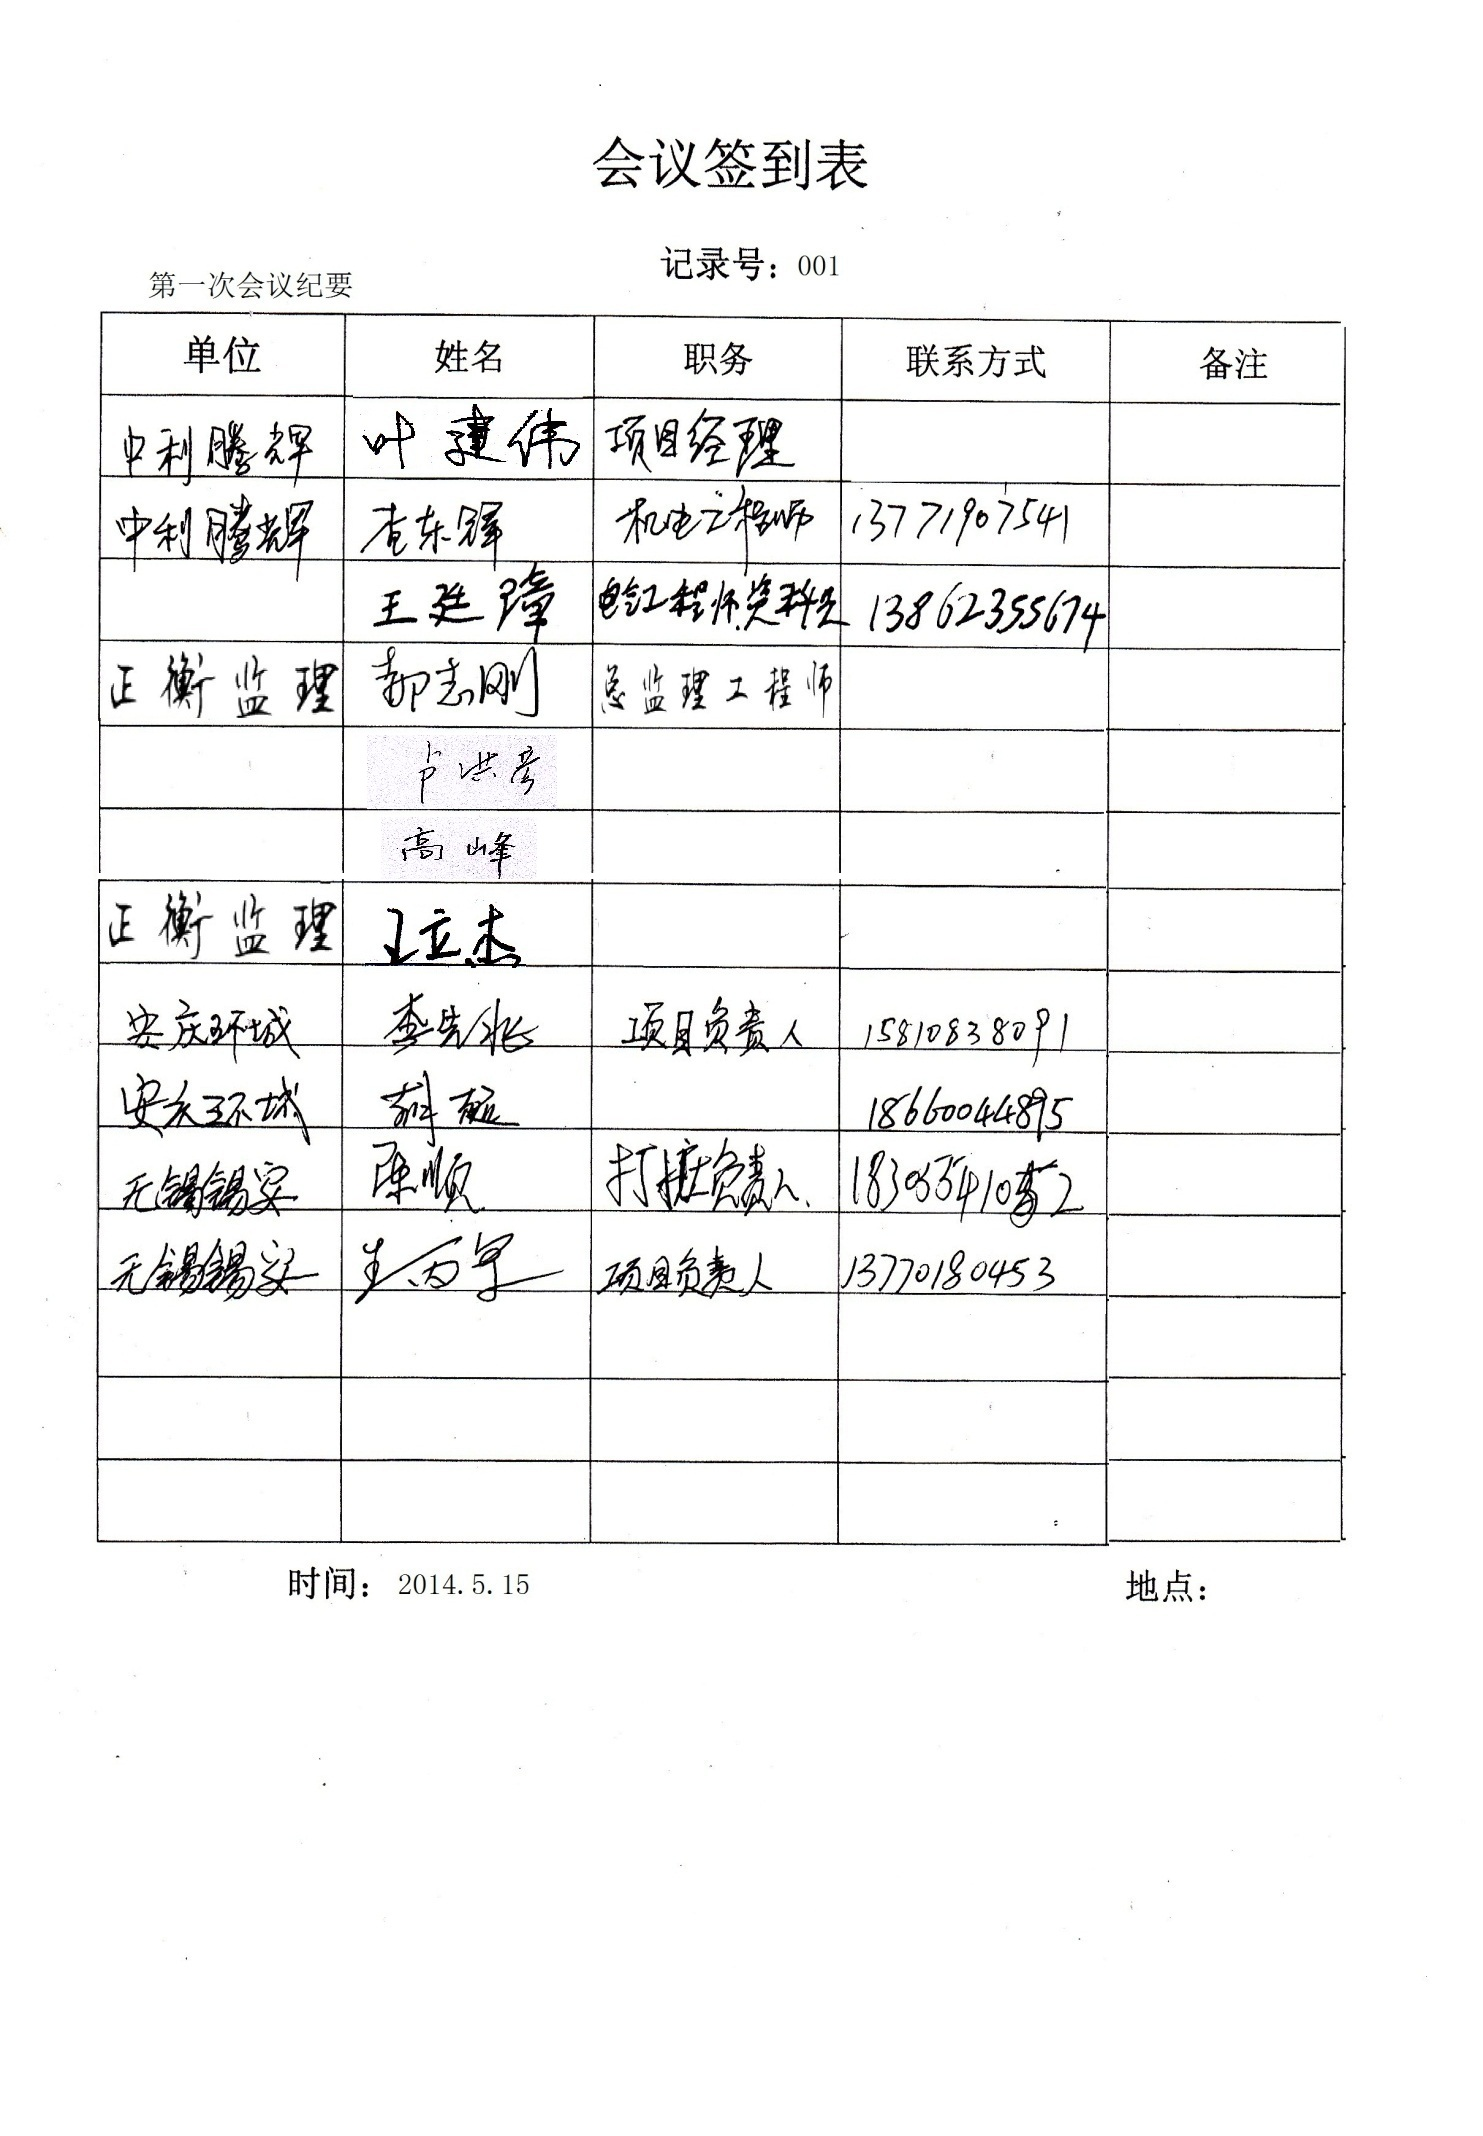 会议签到表
记录号：001
第一次会议纪要
单位 姓名 职务 联系方式 备注
中利腾辉 叶建伟 项目经理
中利腾辉 查东辉 机电工程师 13771907541
王廷璋 电气工程师.资料员 13862355674
正衡监理 郝志刚 总监理工程师
卢洪彦
高峰
正衡监理 王立杰
安庆环城 李先兆 项目负责人 15810838091
安庆环城 18660044895
无锡锡安 陈顺 打桩负责人.
无锡锡安 项目负责人 13770180453
时间：2014.5.15 地点：